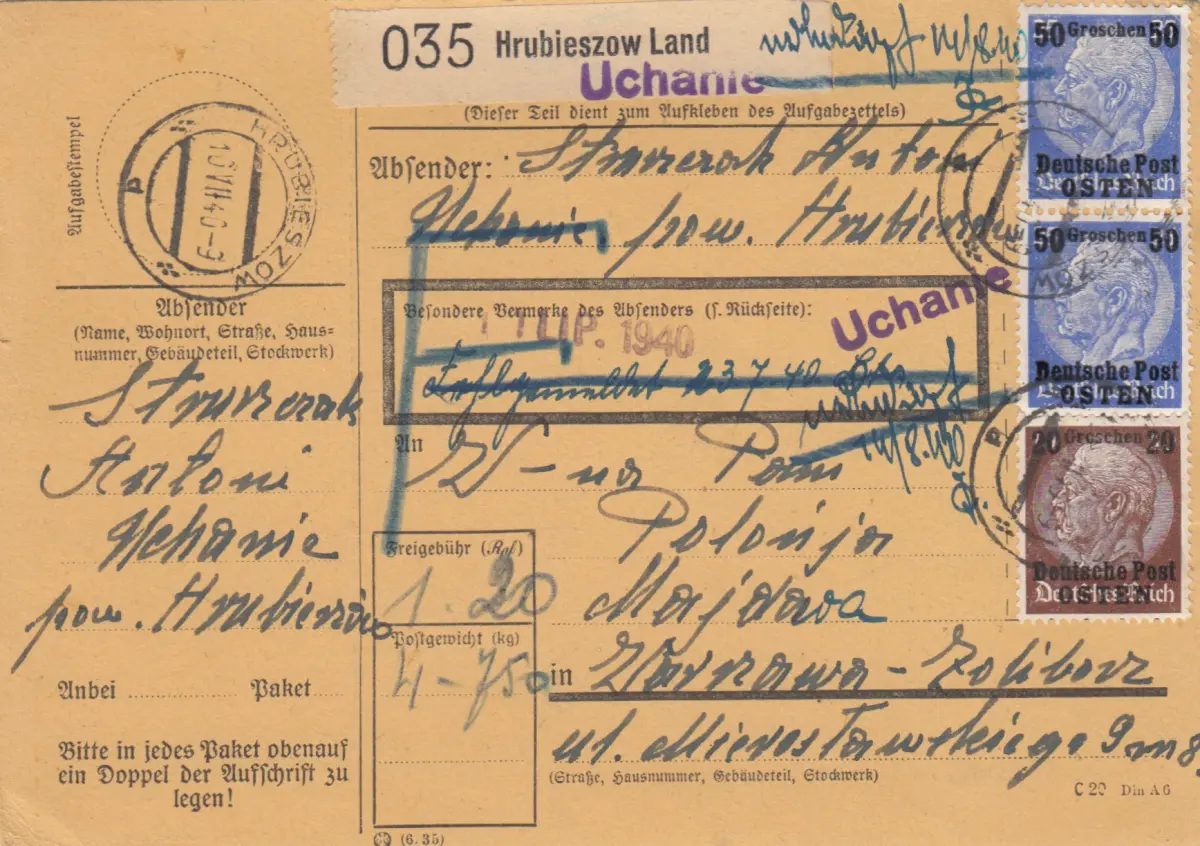 035 Hrubieszow Land
Uchanie
(Dieser Teil dient zum Aufkleben des Aufgabezettels)
Aufgabestempel
HRUBIESZOW
16.VII.40-9
Absender:
Antoni
Uchanie, pow. Hrubieszów
Absender
(Name, Wohnort, Straße, Haus=
nummer, Gebäudeteil, Stockwerk)
Antoni
Uchanie
pow. Hrubieszów
Anbei Paket
Bitte in jedes Paket obenauf
ein Doppel der Aufschrift zu
legen!
Besondere Vermerke des Absenders (s. Rückseite):
LIP. 1940
Uchanie
23 7 40
14/8.40
An
W-na Pani
Polonja
Majdawa
in Warszawa-Żoliborz
ul. Mierosławskiego 9 m 8
(Straße, Hausnummer, Gebäudeteil, Stockwerk)
Freigebühr
1.20
Postgewicht (kg)
4-750
(6.35)
C 29 Din A 6
50 Groschen 50
Deutsche Post
OSTEN
Deutsches Reich
50 Groschen 50
Deutsche Post
OSTEN
Deutsches Reich
20 Groschen 20
Deutsche Post
OSTEN
Deutsches Reich